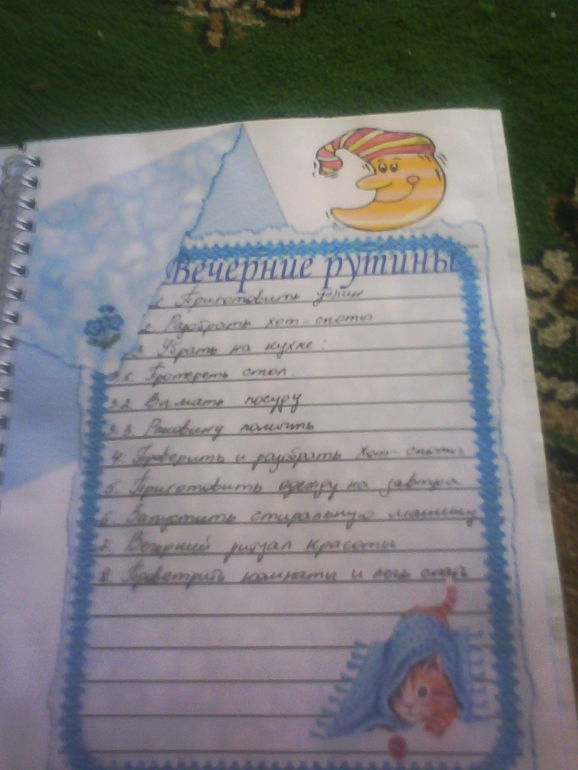 Вечерние рутины
1. Приготовить ужин
2. Разобрать хот-споты
3. Убрать на кухне:
3.1. Протереть стол.
3.2 Вымыть посуду
3.3. Раковину помыть
4. Проверить и разобрать хот-споты
5. Приготовить одежду на завтра.
6. Запустить стиральную машину
7. Вечерний ритуал красоты
8. Проветрить комнаты и лечь спать